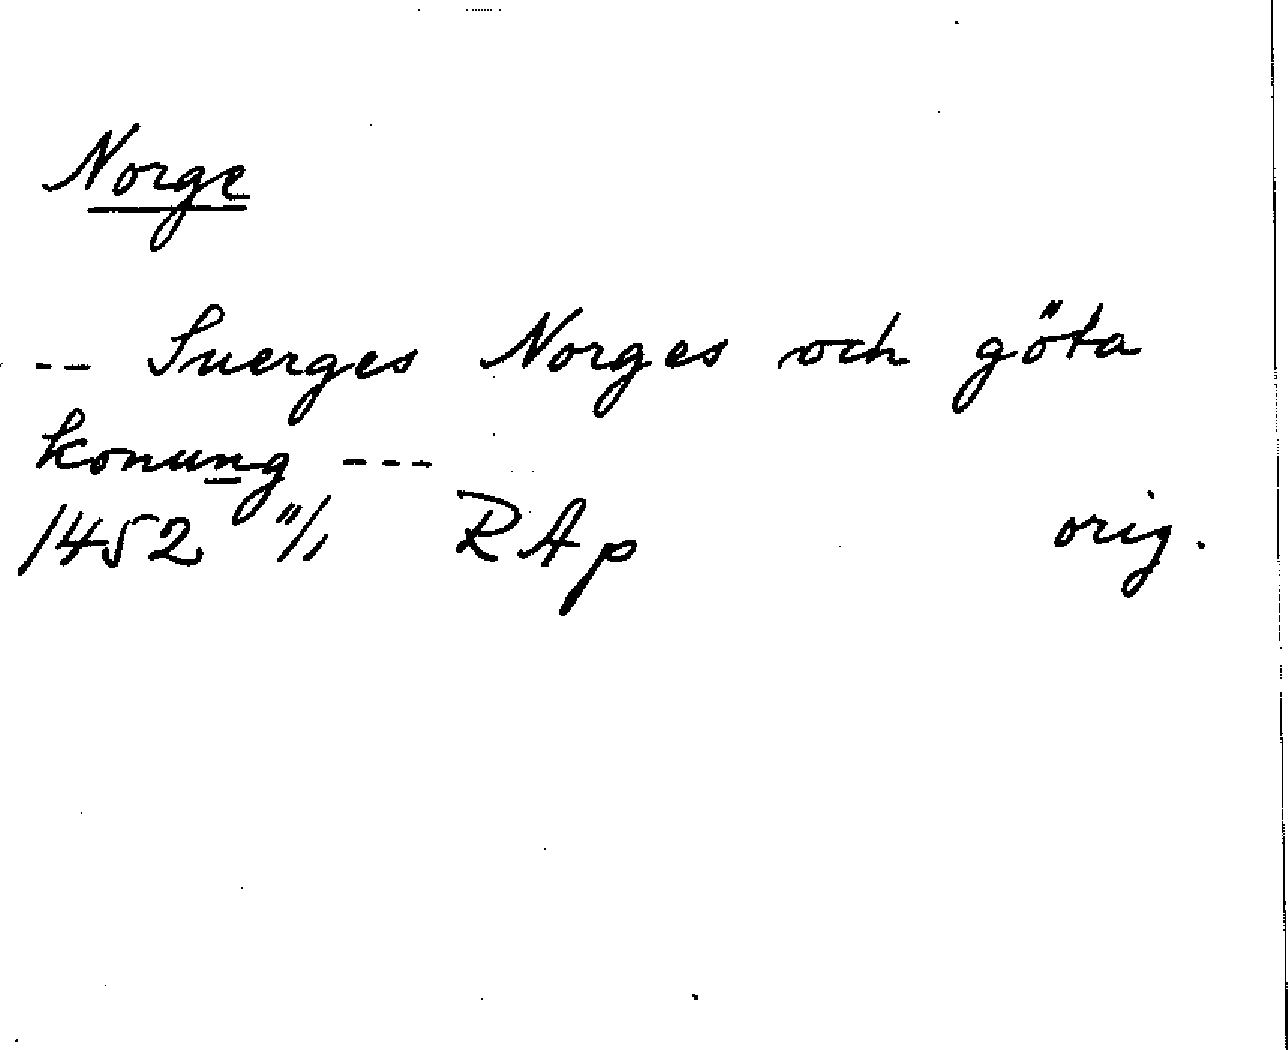 Norge
--- Suerges Norges och göta
konung ---
1452 11/1 RAp orig.